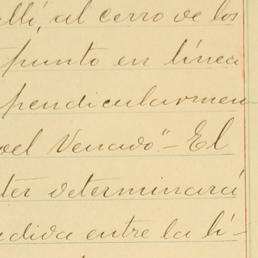 allí, al cerro de los
punto en línea
pendicularmen
del Venado."- El
ter determinará
ndida entre la lí-